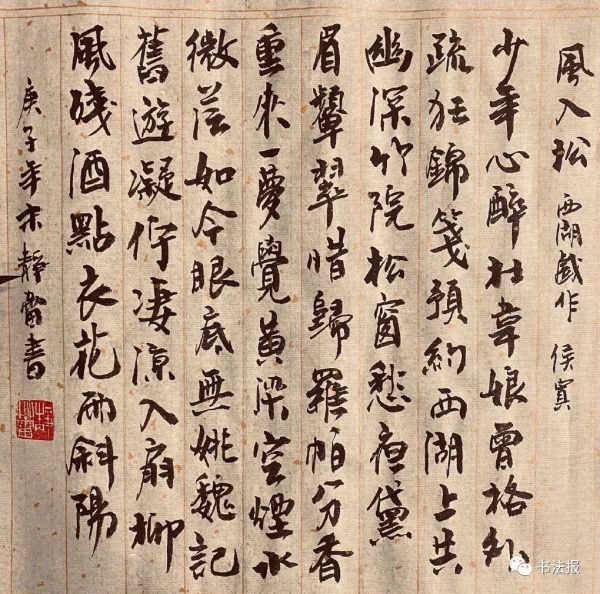 風入松 西湖戲作 侯寘
少年心醉杜韋娘曾格外
疏狂錦箋預約西湖上共
幽深竹院松窗愁夜黛
眉顰翠惜歸羅帕分香
重來一夢覺黃梁空煙水
微茫如今眼底無姚魏記
舊遊凝佇淒涼入扇柳
風殘酒點衣花雨斜陽
庚子年末靜雷書
书法报